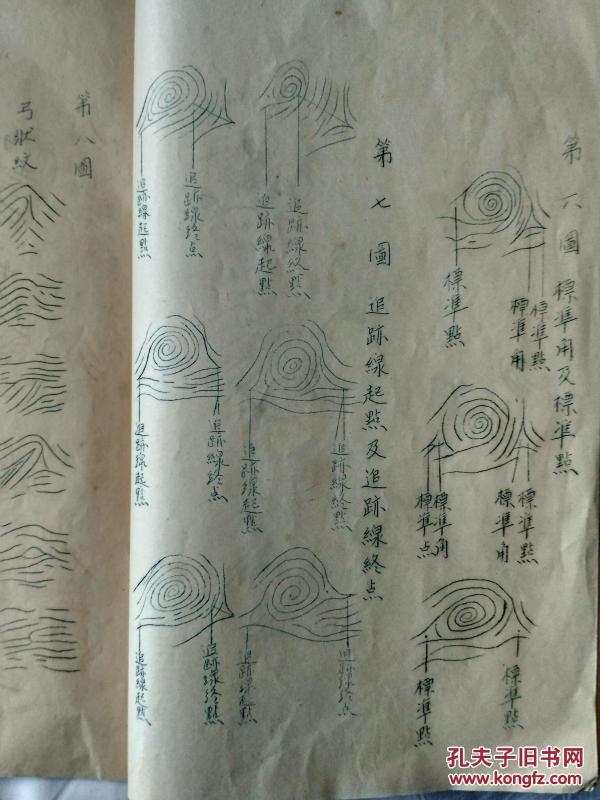 第六圖 標準角及標準點
標準點
標準角
標準點
標準点
標準角
標準角
標準點
標準點
標準點
第七圖 追跡線起點及追跡線終点
追跡線起點
追跡線終点
追跡線起點
追跡線終點
追跡線起點
追跡線終点
追跡線起點
追跡線終點
追跡線起點
追跡線終點
追跡線起點
追跡線終点
第八圖
弓狀紋
孔夫子旧书网
www.kongfz.com